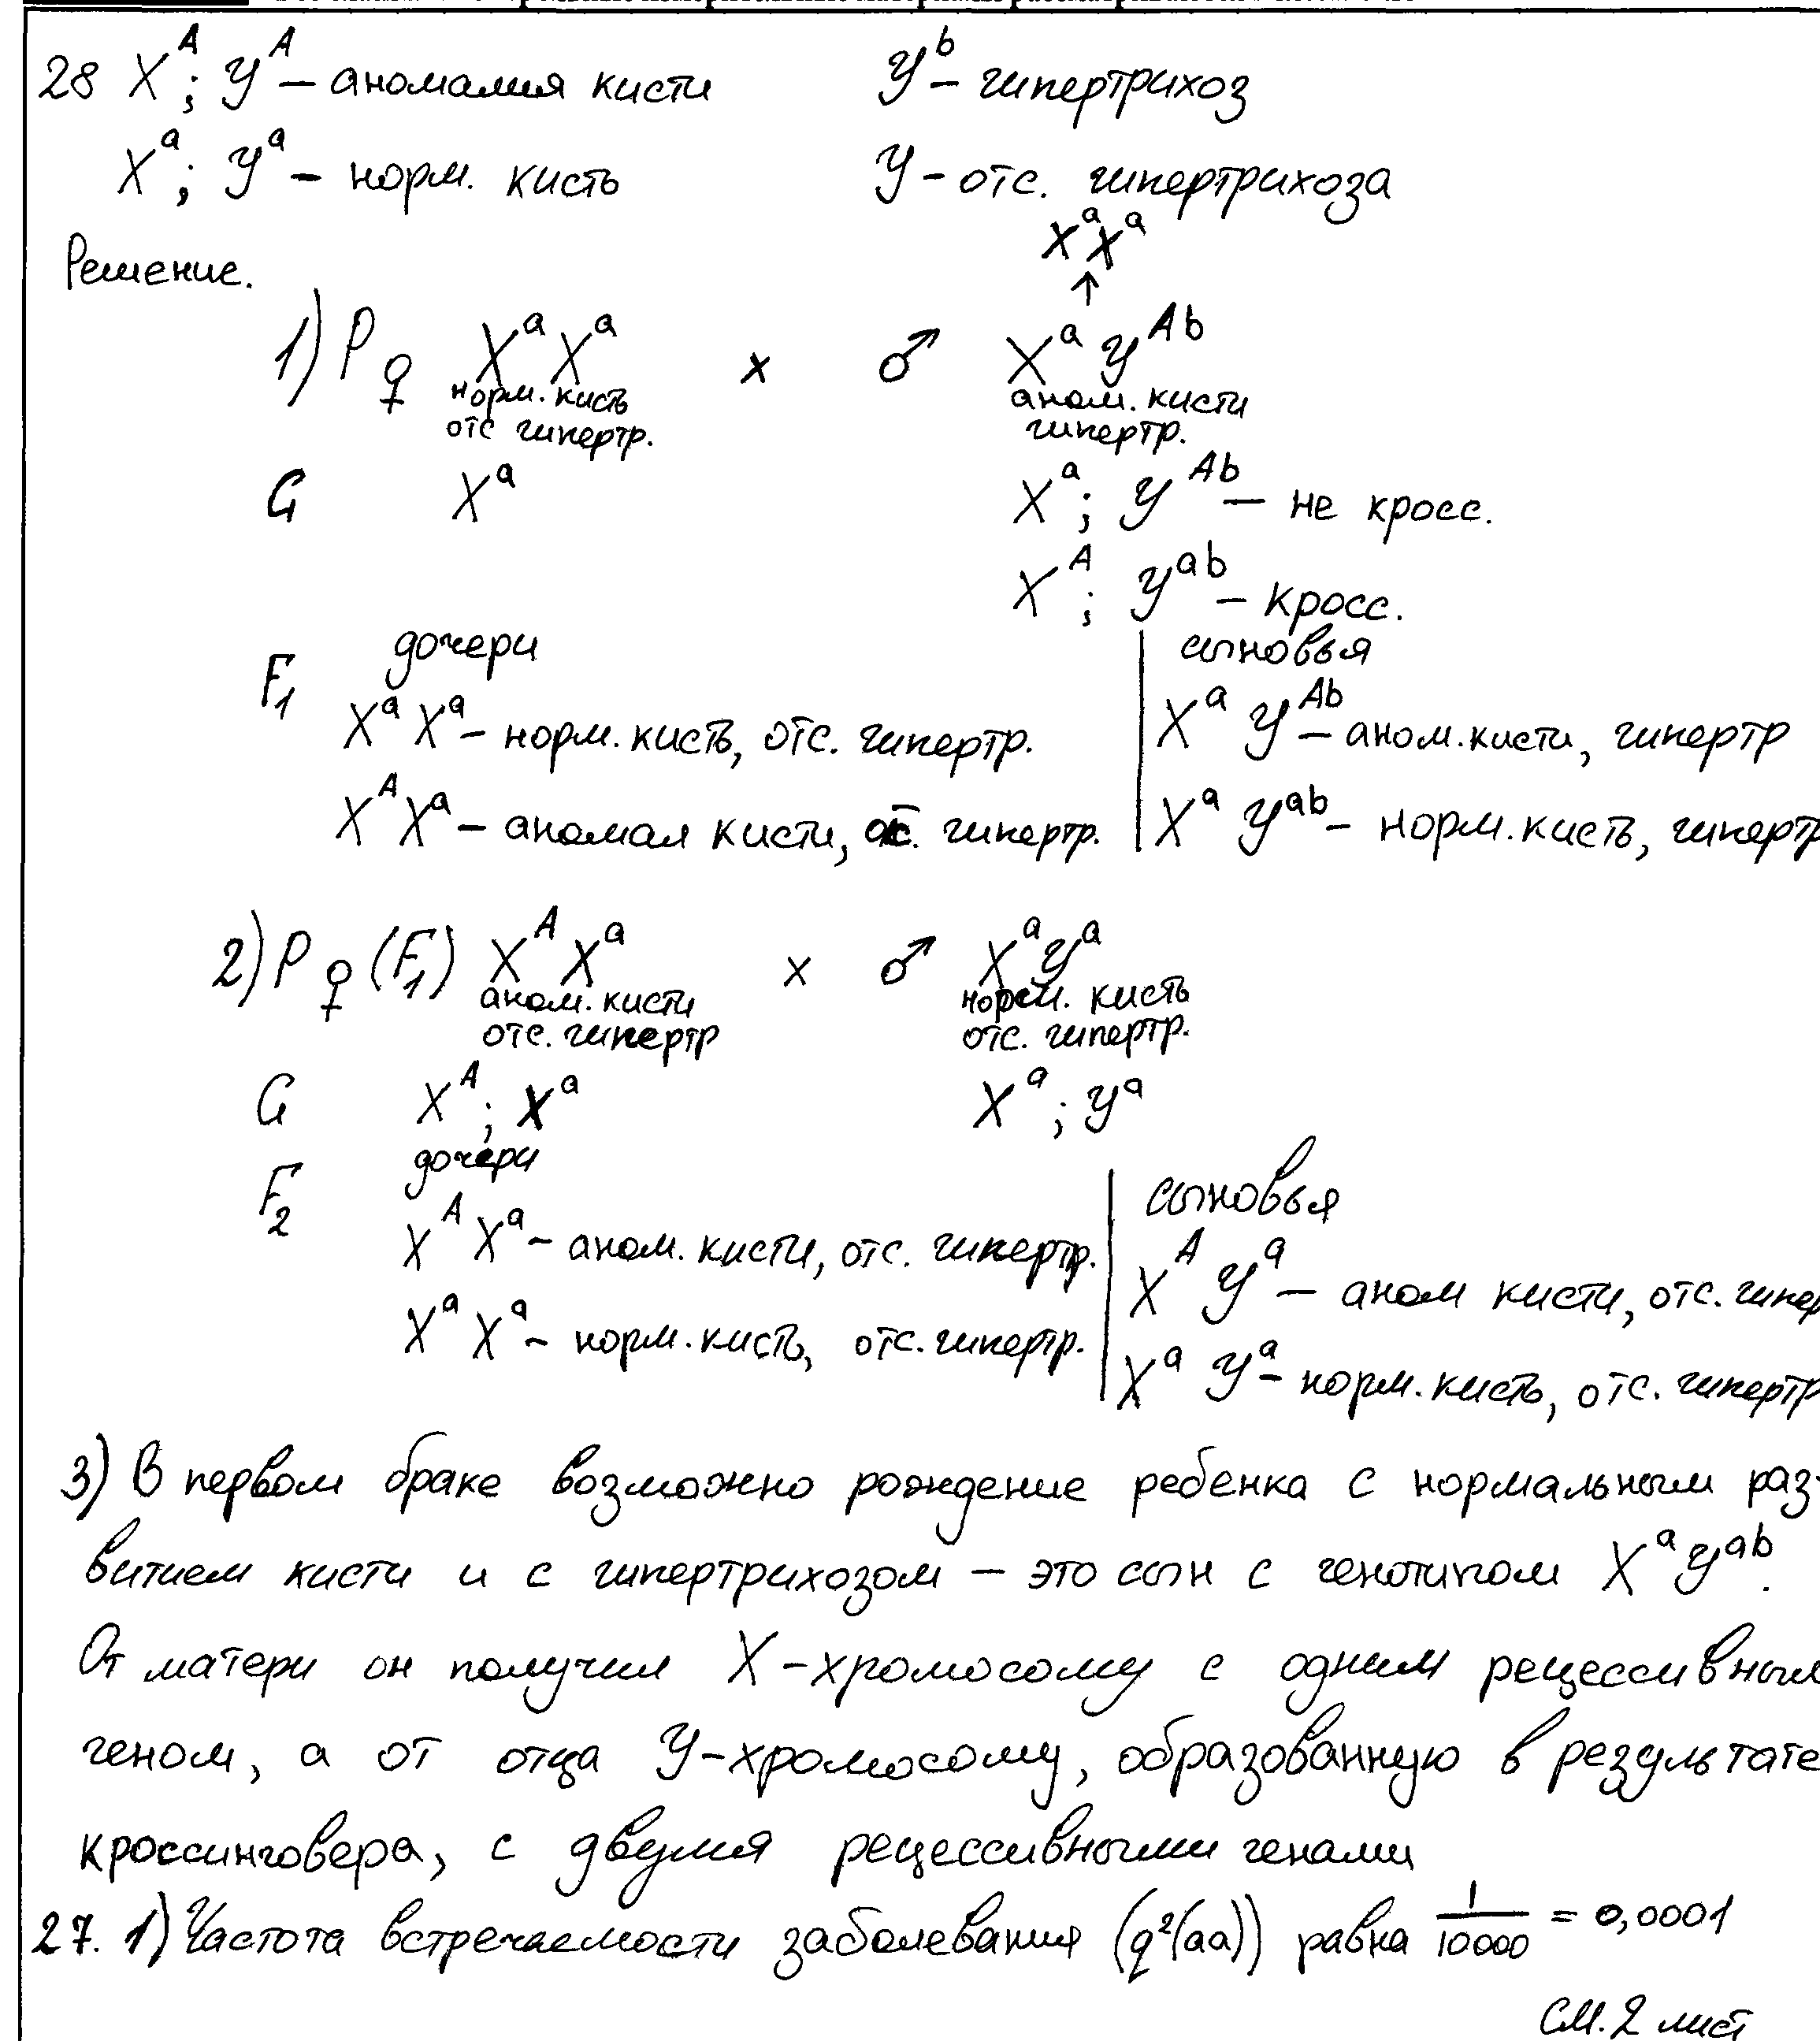 28 X^A; Y^A – аномалия кисти Y^b – гипертрихоз
X^a; Y^a – норм. кисть Y – отс. гипертрихоза
X^a X^a
↑
Решение.
1) P ♀ X^a X^a x ♂ X^a Y^Ab
норм. кисть аном. кисти
отс гипертр. гипертр.
G X^a X^a; Y^Ab – не кросс.
X^A; Y^ab – кросс.
F1 дочери | сыновья
X^a X^a – норм. кисть, отс. гипертр. | X^a Y^Ab – аном. кисти, гипертр
X^A X^a – аномал кисти, отс. гипертр. | X^a Y^ab – норм. кисть, гипертр
2) P ♀ (F1) X^A X^a x ♂ X^a Y^a
аном. кисти норм. кисть
отс. гипертр отс. гипертр.
G X^A; X^a X^a; Y^a
F2 дочери | сыновья
X^A X^a – аном. кисти, отс. гипертр. | X^A Y^a – аном кисти, отс. гипер
X^a X^a – норм. кисть, отс. гипертр. | X^a Y^a – норм. кисть, отс. гипертр
3) В первом браке возможно рождение ребенка с нормальным раз-
витием кисти и с гипертрихозом – это сын с генотипом X^a Y^ab.
От матери он получил X-хромосому с одним рецессивным
геном, а от отца Y-хромосому, образованную в результате
кроссинговера, с двумя рецессивными генами
27. 1) Частота встречаемости заболевания (q²(aa)) равна 1/10000 = 0,0001
См. 2 лист